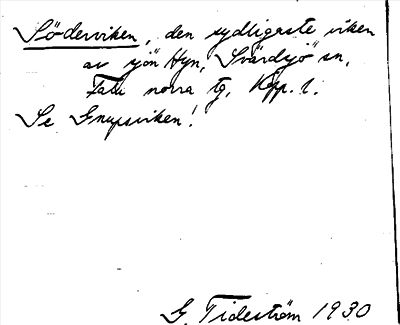 Söderviken, den sydligaste viken
av sjön Hyn, Svärdsjö sn,
Falu norra tg, Kopp. l.
Se Gnupsviken!
G. Tideström 1930